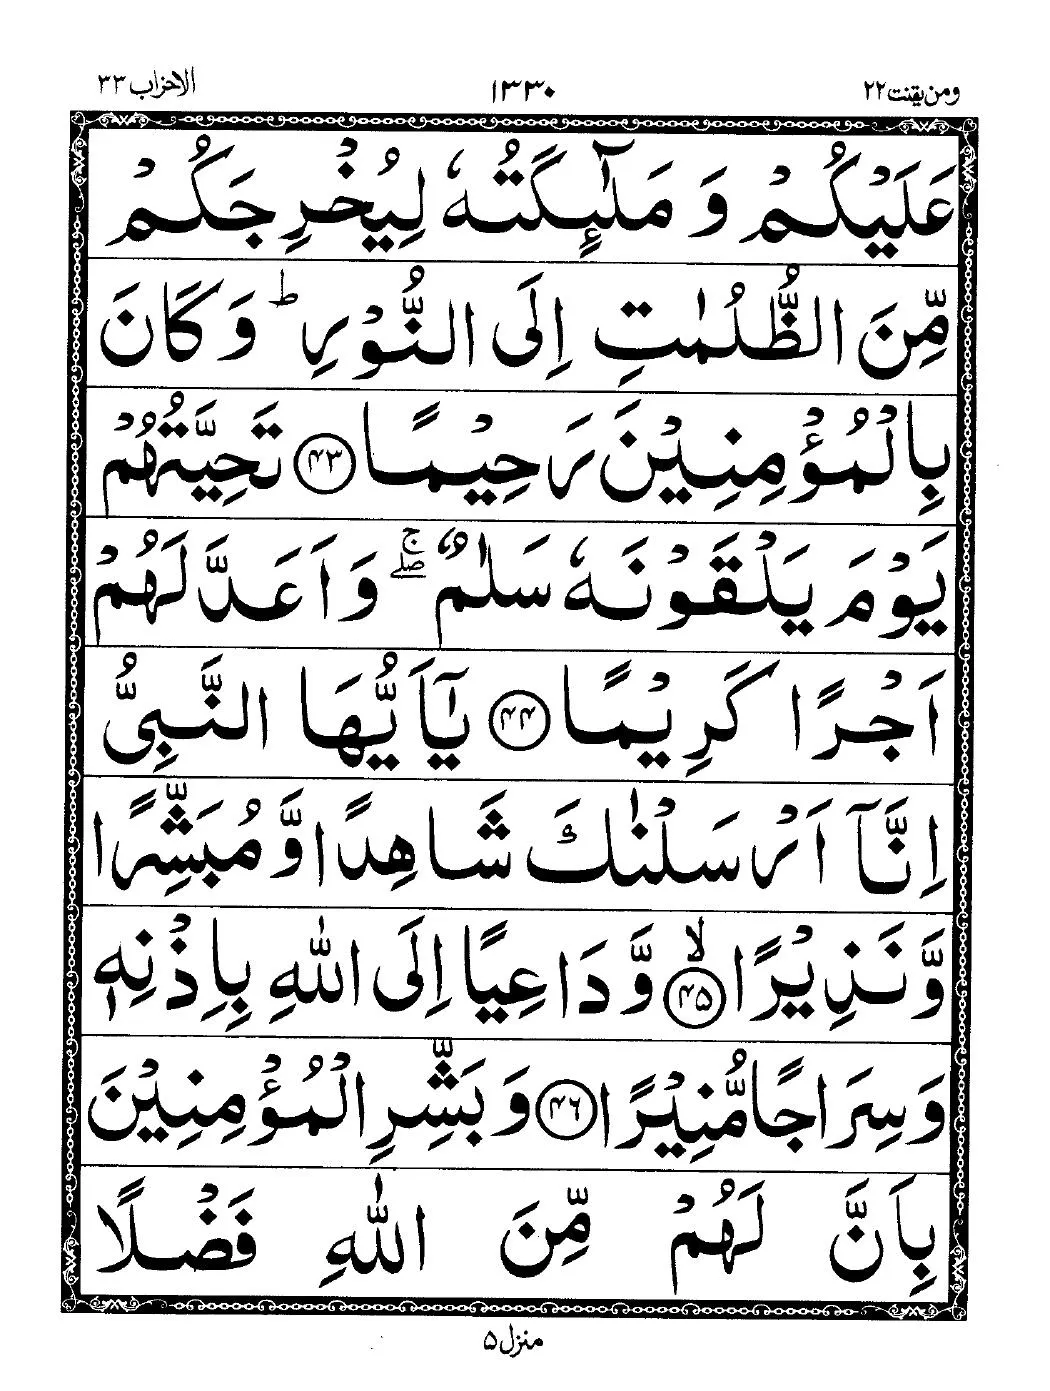 ومن یقنت ۲۲ ۱۳۳۰ الاحزاب ۳۳
عَلَيْكُمْ وَ مَلٰٓئِكَتُهٗ لِيُخْرِجَكُمْ
مِّنَ الظُّلُمٰتِ اِلَى النُّوْرِ ؕ وَ كَانَ
بِالْمُؤْمِنِيْنَ رَحِيْمًا ﴿۴۳﴾ تَحِيَّتُهُمْ
يَوْمَ يَلْقَوْنَهٗ سَلٰمٌ ۚۖ وَ اَعَدَّ لَهُمْ
اَجْرًا كَرِيْمًا ﴿۴۴﴾ يٰۤاَيُّهَا النَّبِىُّ
اِنَّاۤ اَرْسَلْنٰكَ شَاهِدًا وَّ مُبَشِّرًا
وَّ نَذِيْرًا ۙ﴿۴۵﴾ وَّ دَاعِيًا اِلَى اللّٰهِ بِاِذْنِهٖ
وَ سِرَاجًا مُّنِيْرًا ﴿۴۶﴾ وَ بَشِّرِ الْمُؤْمِنِيْنَ
بِاَنَّ لَهُمْ مِّنَ اللّٰهِ فَضْلًا
منزل ۵